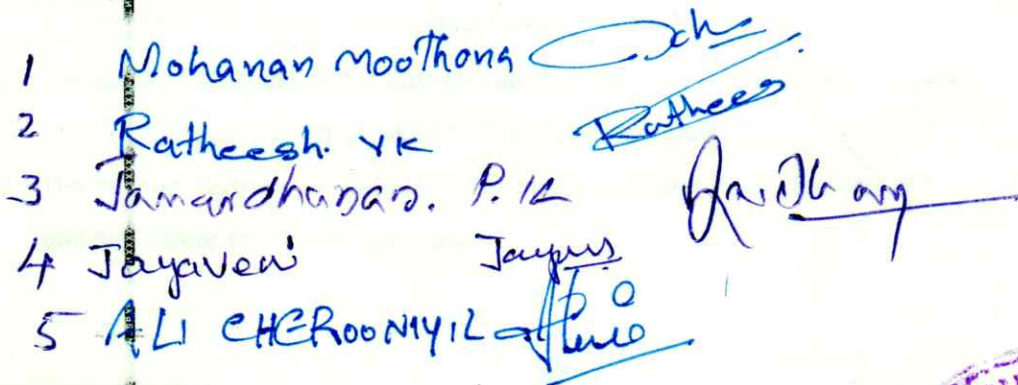 1 Mohanan Moothona
2 Ratheesh. YK Rathees
3 Janardhanan. P.K
4 Jayaveni
5 ALI CHEROONIYIL